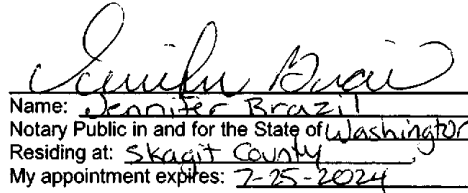 Jennifer Brazil
Name: Jennifer Brazil
Notary Public in and for the State of Washington
Residing at: Skagit County
My appointment expires: 7-25-2024